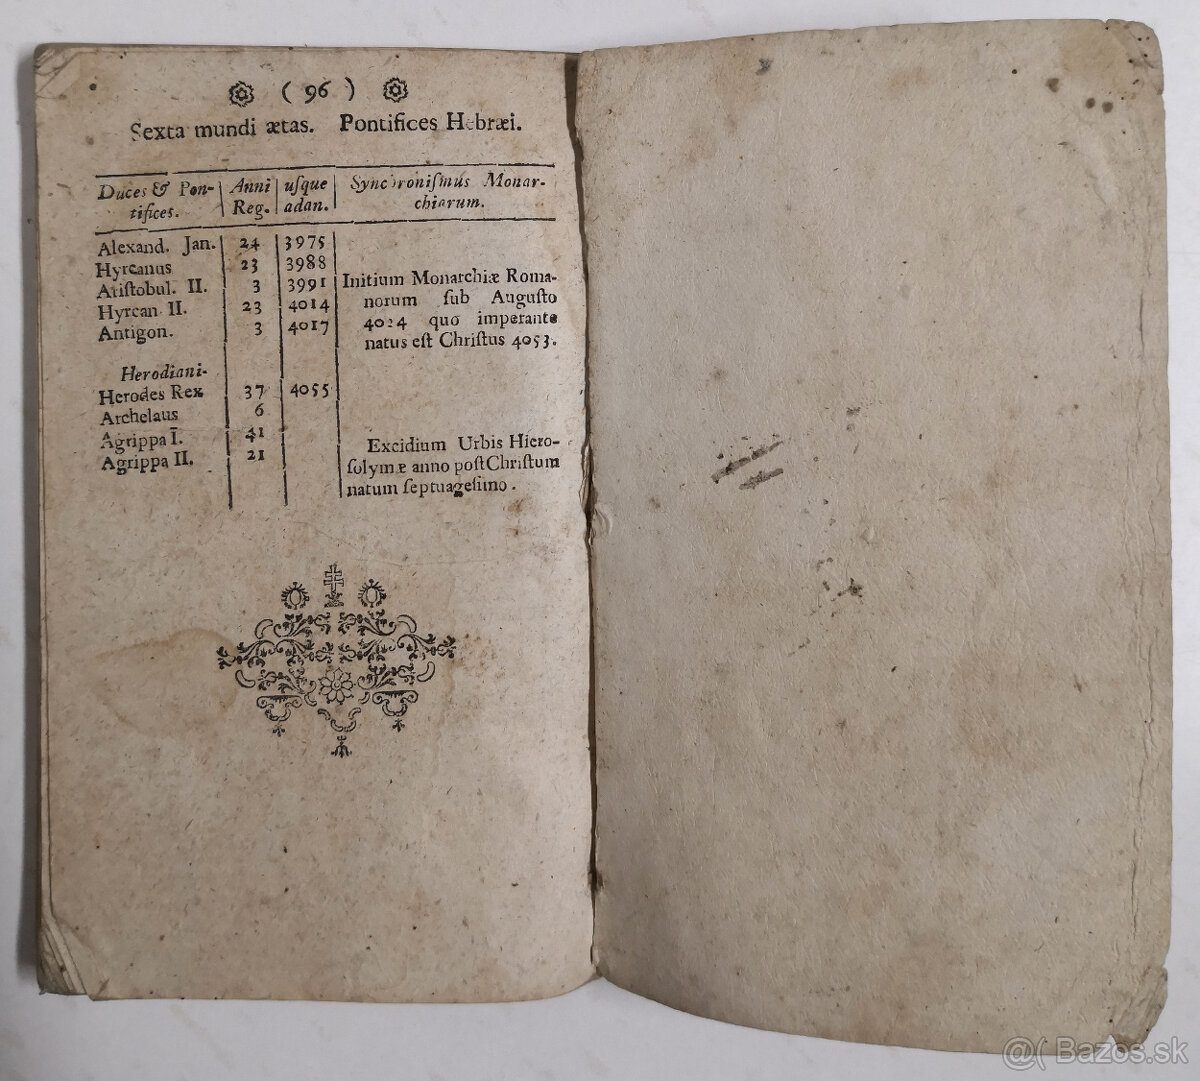 ( 96 )
Sexta mundi ætas. Pontifices Hebræi.
Duces & Pon- Anni uſque Synchroniſmus Monar-
tifices. Reg. adan. chiarum.
Alexand. Jan. 24 3975
Hyrcanus 23 3988
Ariſtobul. II. 3 3991 Initium Monarchiæ Roma-
Hyrcan II. 23 4014 norum ſub Auguſto
Antigon. 3 4017 4024 quo imperante
natus eſt Chriſtus 4053.
Herodiani-
Herodes Rex 37 4055
Archelaus 6
Agrippa I. 41 Excidium Urbis Hiero-
Agrippa II. 21 ſolymæ anno poſt Chriſtum
natum ſeptuageſimo.
@( Bazos.sk